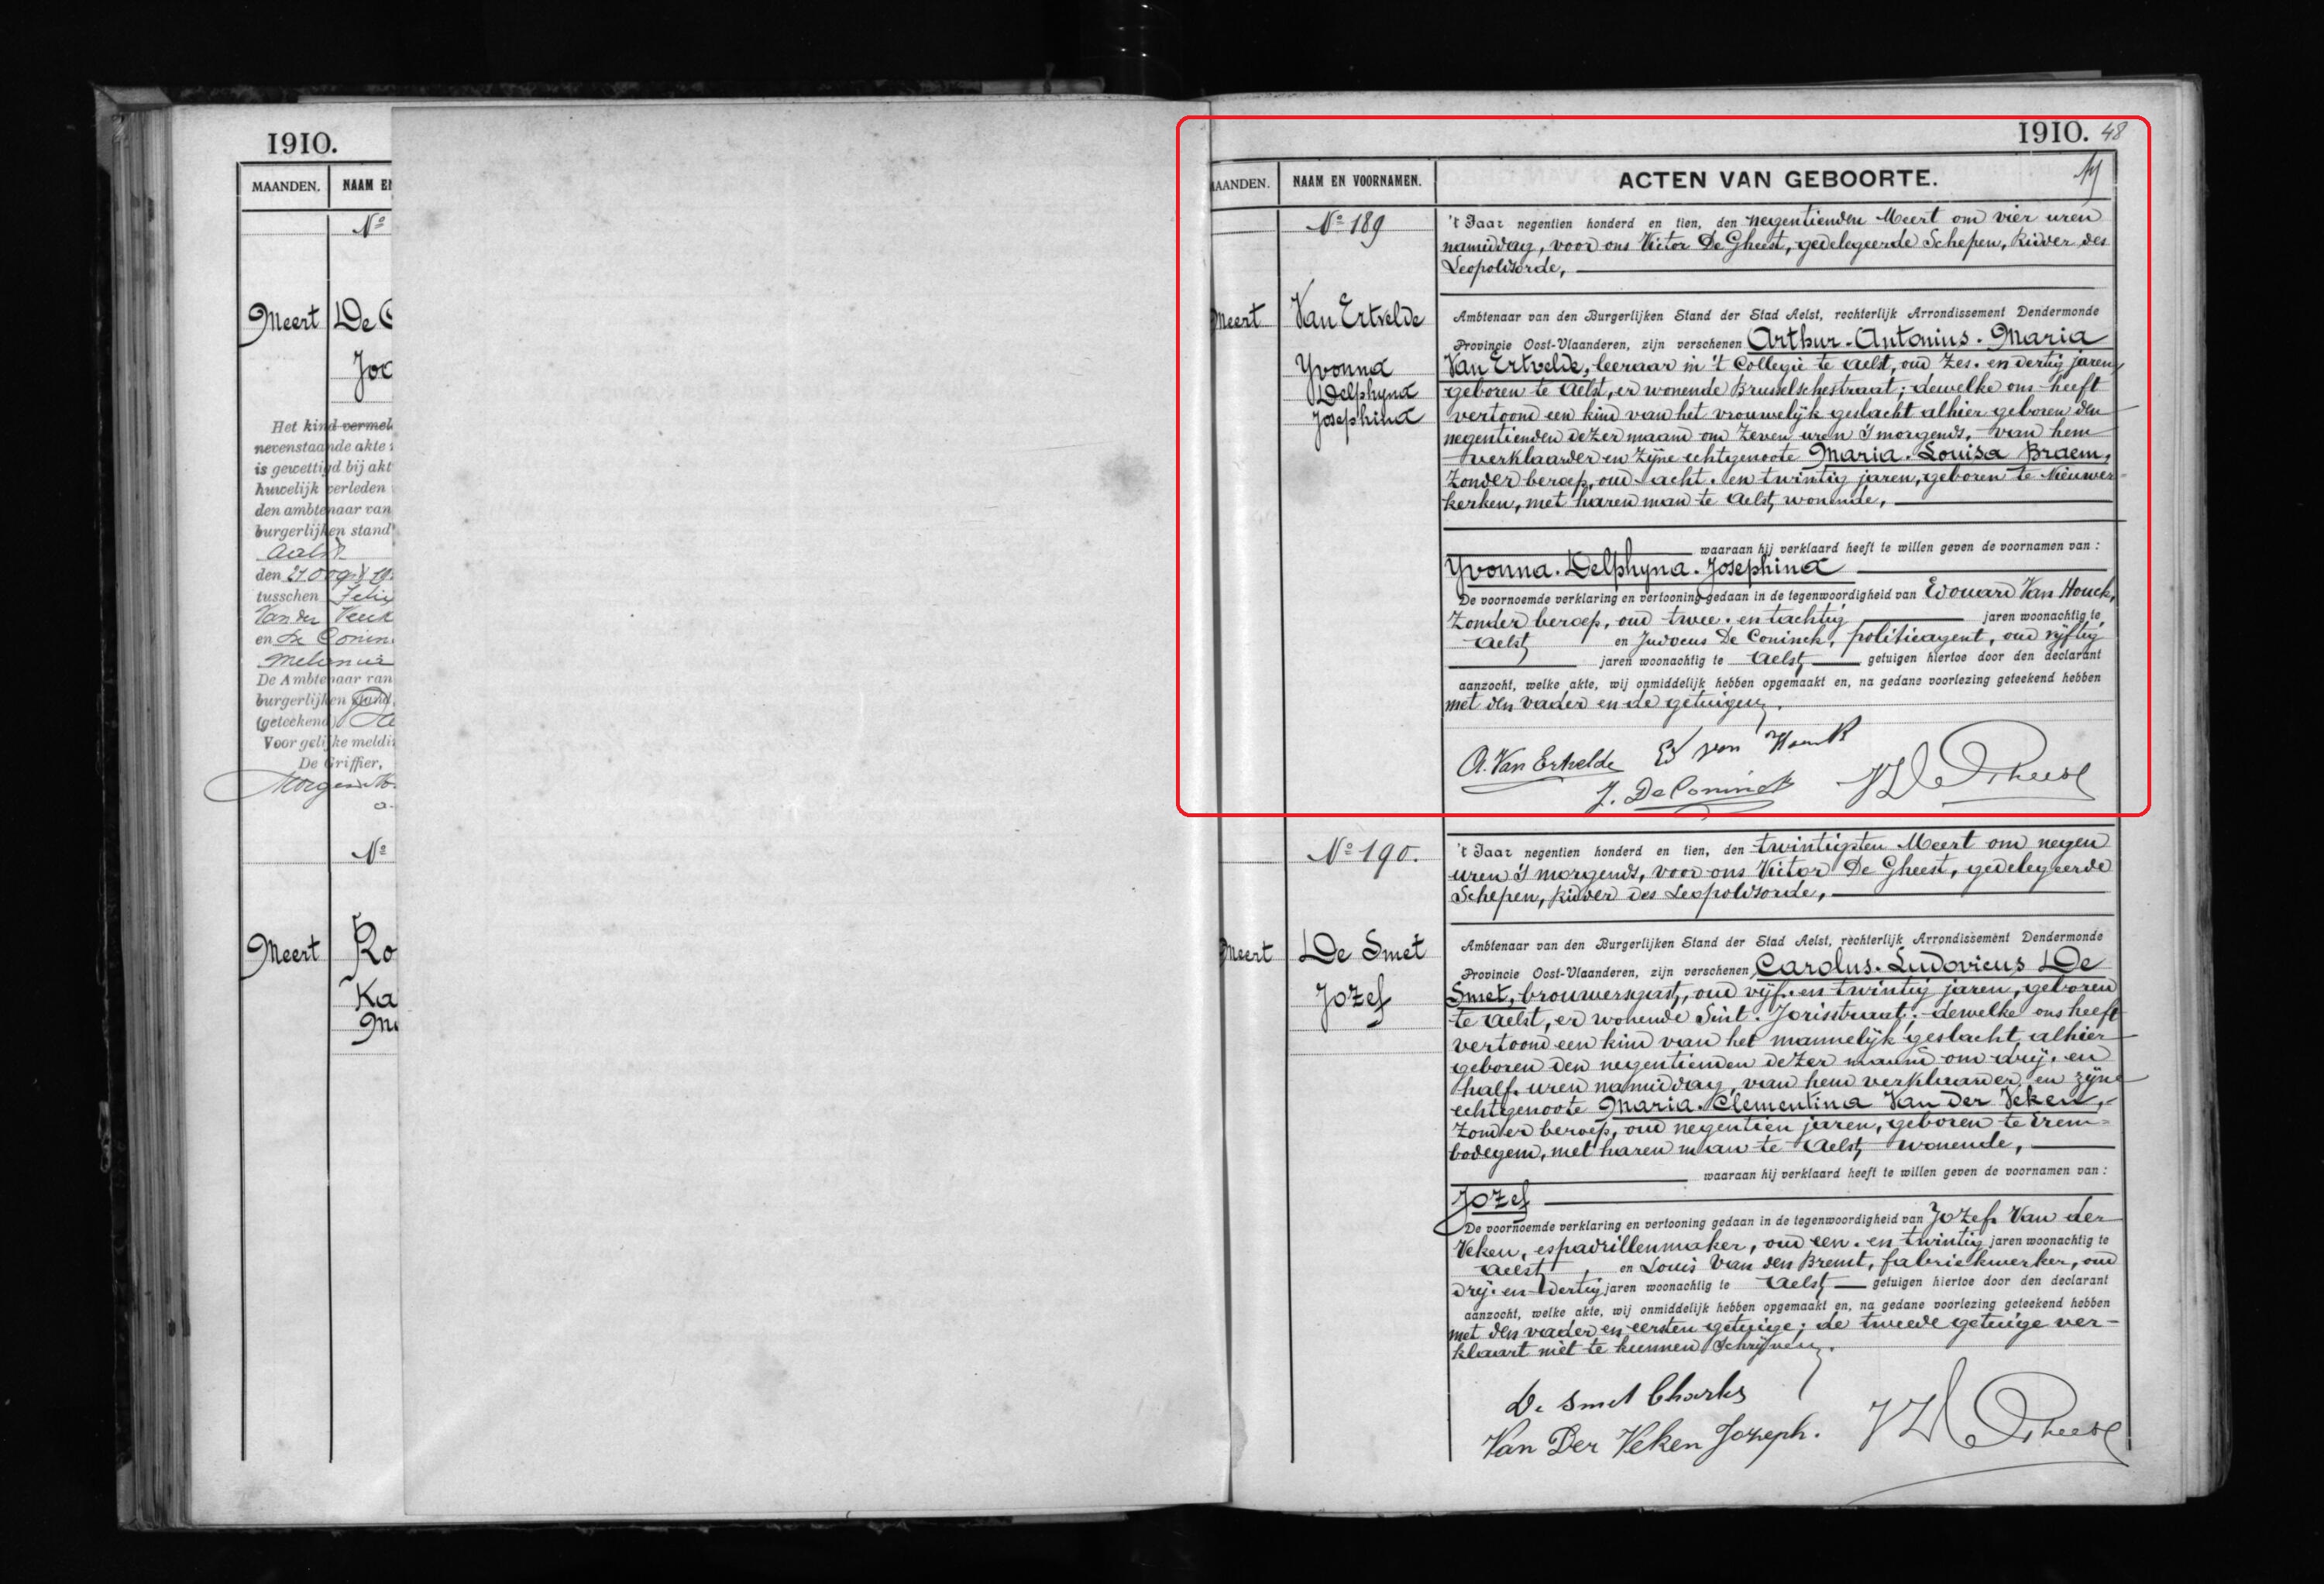 1910.
MAANDEN. NAAM EN
Nº
Meert De C
Joo
Het kind vermel
nevenstaande akte
is gewettigd bij akt
huwelijk verleden
den ambtenaar van
burgerlijken stand
Aalst
den 27 Oog
tusschen Felix
Van der Veck
en De Conin
De Ambtenaar van
burgerlijken stand
(geteekend)
Voor gelijke meldi
De Griffier,
Nº
Meert Ro
Ka
Ma
1910. 48
MAANDEN. NAAM EN VOORNAMEN. ACTEN VAN GEBOORTE.
Nº 189
Meert Van Ertvelde
Yvonna
Delphyna
Josephina
't Jaar negentien honderd en tien, den negentienden Meert om vier uren
namiddag, voor ons Victor De Gheest, gedelegeerde Schepen, Ridder des
Leopoldsorde,
Ambtenaar van den Burgerlijken Stand der Stad Aelst, rechterlijk Arrondissement Dendermonde
Provincie Oost-Vlaanderen, zijn verschenen Arthur-Antonius-Maria
Van Ertvelde, leeraar in 't Collegie te Aelst, oud zes-en dertig jaren,
geboren te Aelst, er wonende Brusselschestraat; dewelke ons heeft
vertoond een kind van het vrouwelijk geslacht alhier geboren den
negentienden dezer maand om zeven uren 's morgends, van hem
verklaarder en zijne echtgenoote Maria-Louisa Braem,
zonder beroep, oud acht-en twintig jaren, geboren te Nieuwer=
kerken, met haren man te Aelst wonende,
waaraan hij verklaard heeft te willen geven de voornamen van :
Yvonna-Delphyna-Josephina
De voornoemde verklaring en vertooning gedaan in de tegenwoordigheid van Edouard Van Houck,
zonder beroep, oud twee-en tachtig jaren woonachtig te
Aelst en Judocus De Coninck, politieagent, oud vijftig
jaren woonachtig te Aelst getuigen hiertoe door den declarant
aanzocht, welke akte, wij onmiddelijk hebben opgemaakt en, na gedane voorlezing geteekend hebben
met den vader en de getuigen.
A. Van Ertvelde Ed van Houck
J. De Coninck V De Gheest
Nº 190.
Meert De Smet
Jozef
't Jaar negentien honderd en tien, den twintigsten Meert om negen
uren 's morgends, voor ons Victor De Gheest, gedelegeerde
Schepen, Ridder des Leopoldsorde,
Ambtenaar van den Burgerlijken Stand der Stad Aelst, rechterlijk Arrondissement Dendermonde
Provincie Oost-Vlaanderen, zijn verschenen Carolus-Ludovicus De
Smet, brouwersgast, oud vijf-en twintig jaren, geboren
te Aelst, er wonende Sint-Jorisstraat; dewelke ons heeft
vertoond een kind van het mannelijk geslacht alhier
geboren den negentienden dezer maand om drij-en
half uren namiddag, van hem verklaarder en zijne
echtgenoote Maria-Clementina Van der Veken,
zonder beroep, oud negentien jaren, geboren te Erem=
bodegem, met haren man te Aelst wonende,
waaraan hij verklaard heeft te willen geven de voornamen van :
Jozef
De voornoemde verklaring en vertooning gedaan in de tegenwoordigheid van Jozef Van der
Veken, espadrillenmaker, oud een-en twintig jaren woonachtig te
Aelst, en Louis Van den Bremt, fabriekwerker, oud
drij-en dertig jaren woonachtig te Aelst getuigen hiertoe door den declarant
aanzocht, welke akte, wij onmiddelijk hebben opgemaakt en, na gedane voorlezing geteekend hebben
met den vader en eersten getuige; de tweede getuige ver-
klaart niet te kunnen schrijven.
De Smet Charles
Van Der Veken Jozeph. V De Gheest